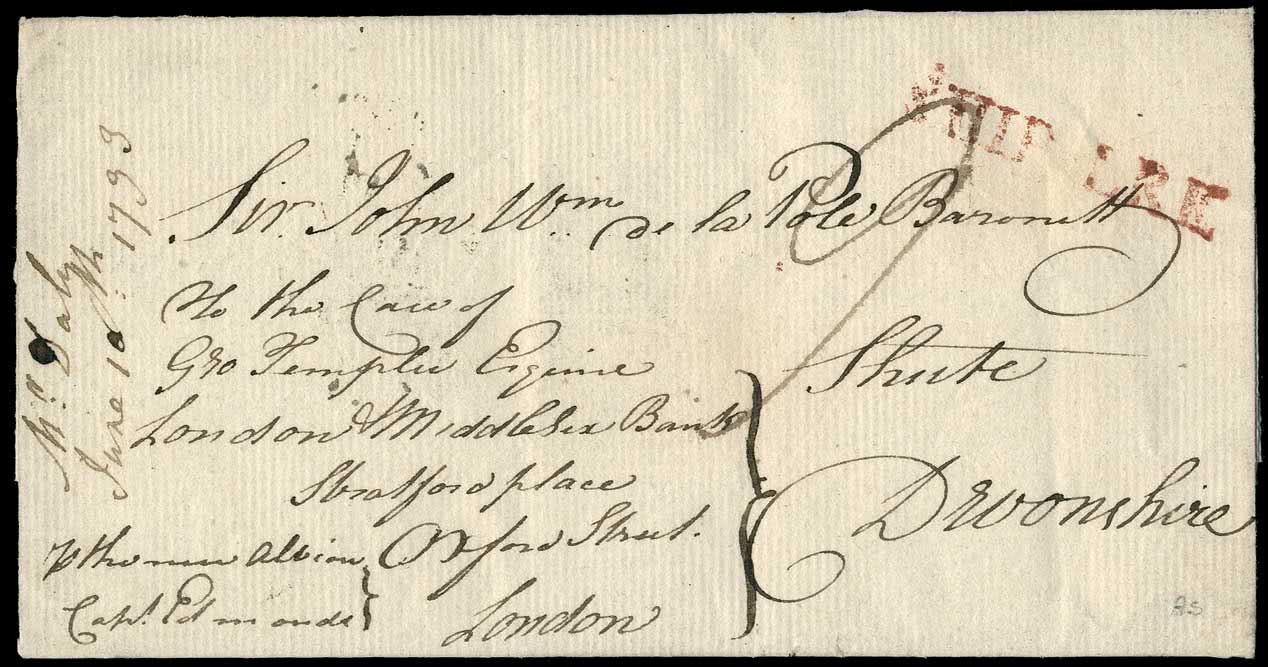 SHIP LRE
Sir John Wm de la Pole Baronett
To the Care of
Geo Templer Esquire
London & Middlesex Bank
Stratford place
Oxford Street.
London
Shute
Devonshire
p the new Albion
Capt Edmonds
Mr Daly
June 10th 1793
AS